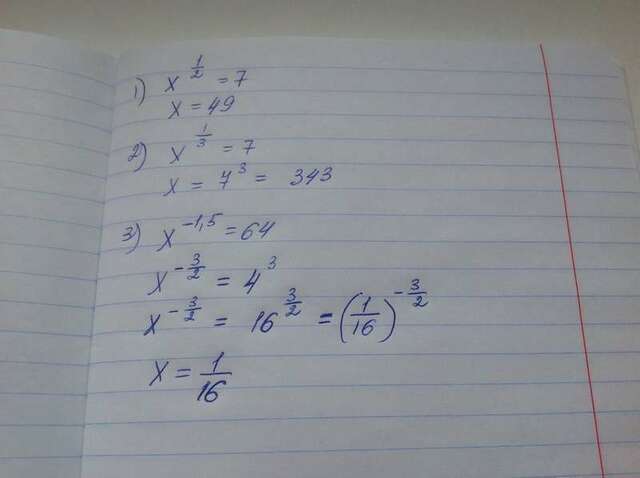 1) x^(1/2) = 7
x = 49
2) x^(1/3) = 7
x = 7^3 = 343
3) x^(-1,5) = 64
x^(-3/2) = 4^3
x^(-3/2) = 16^(3/2) = (1/16)^(-3/2)
x = 1/16